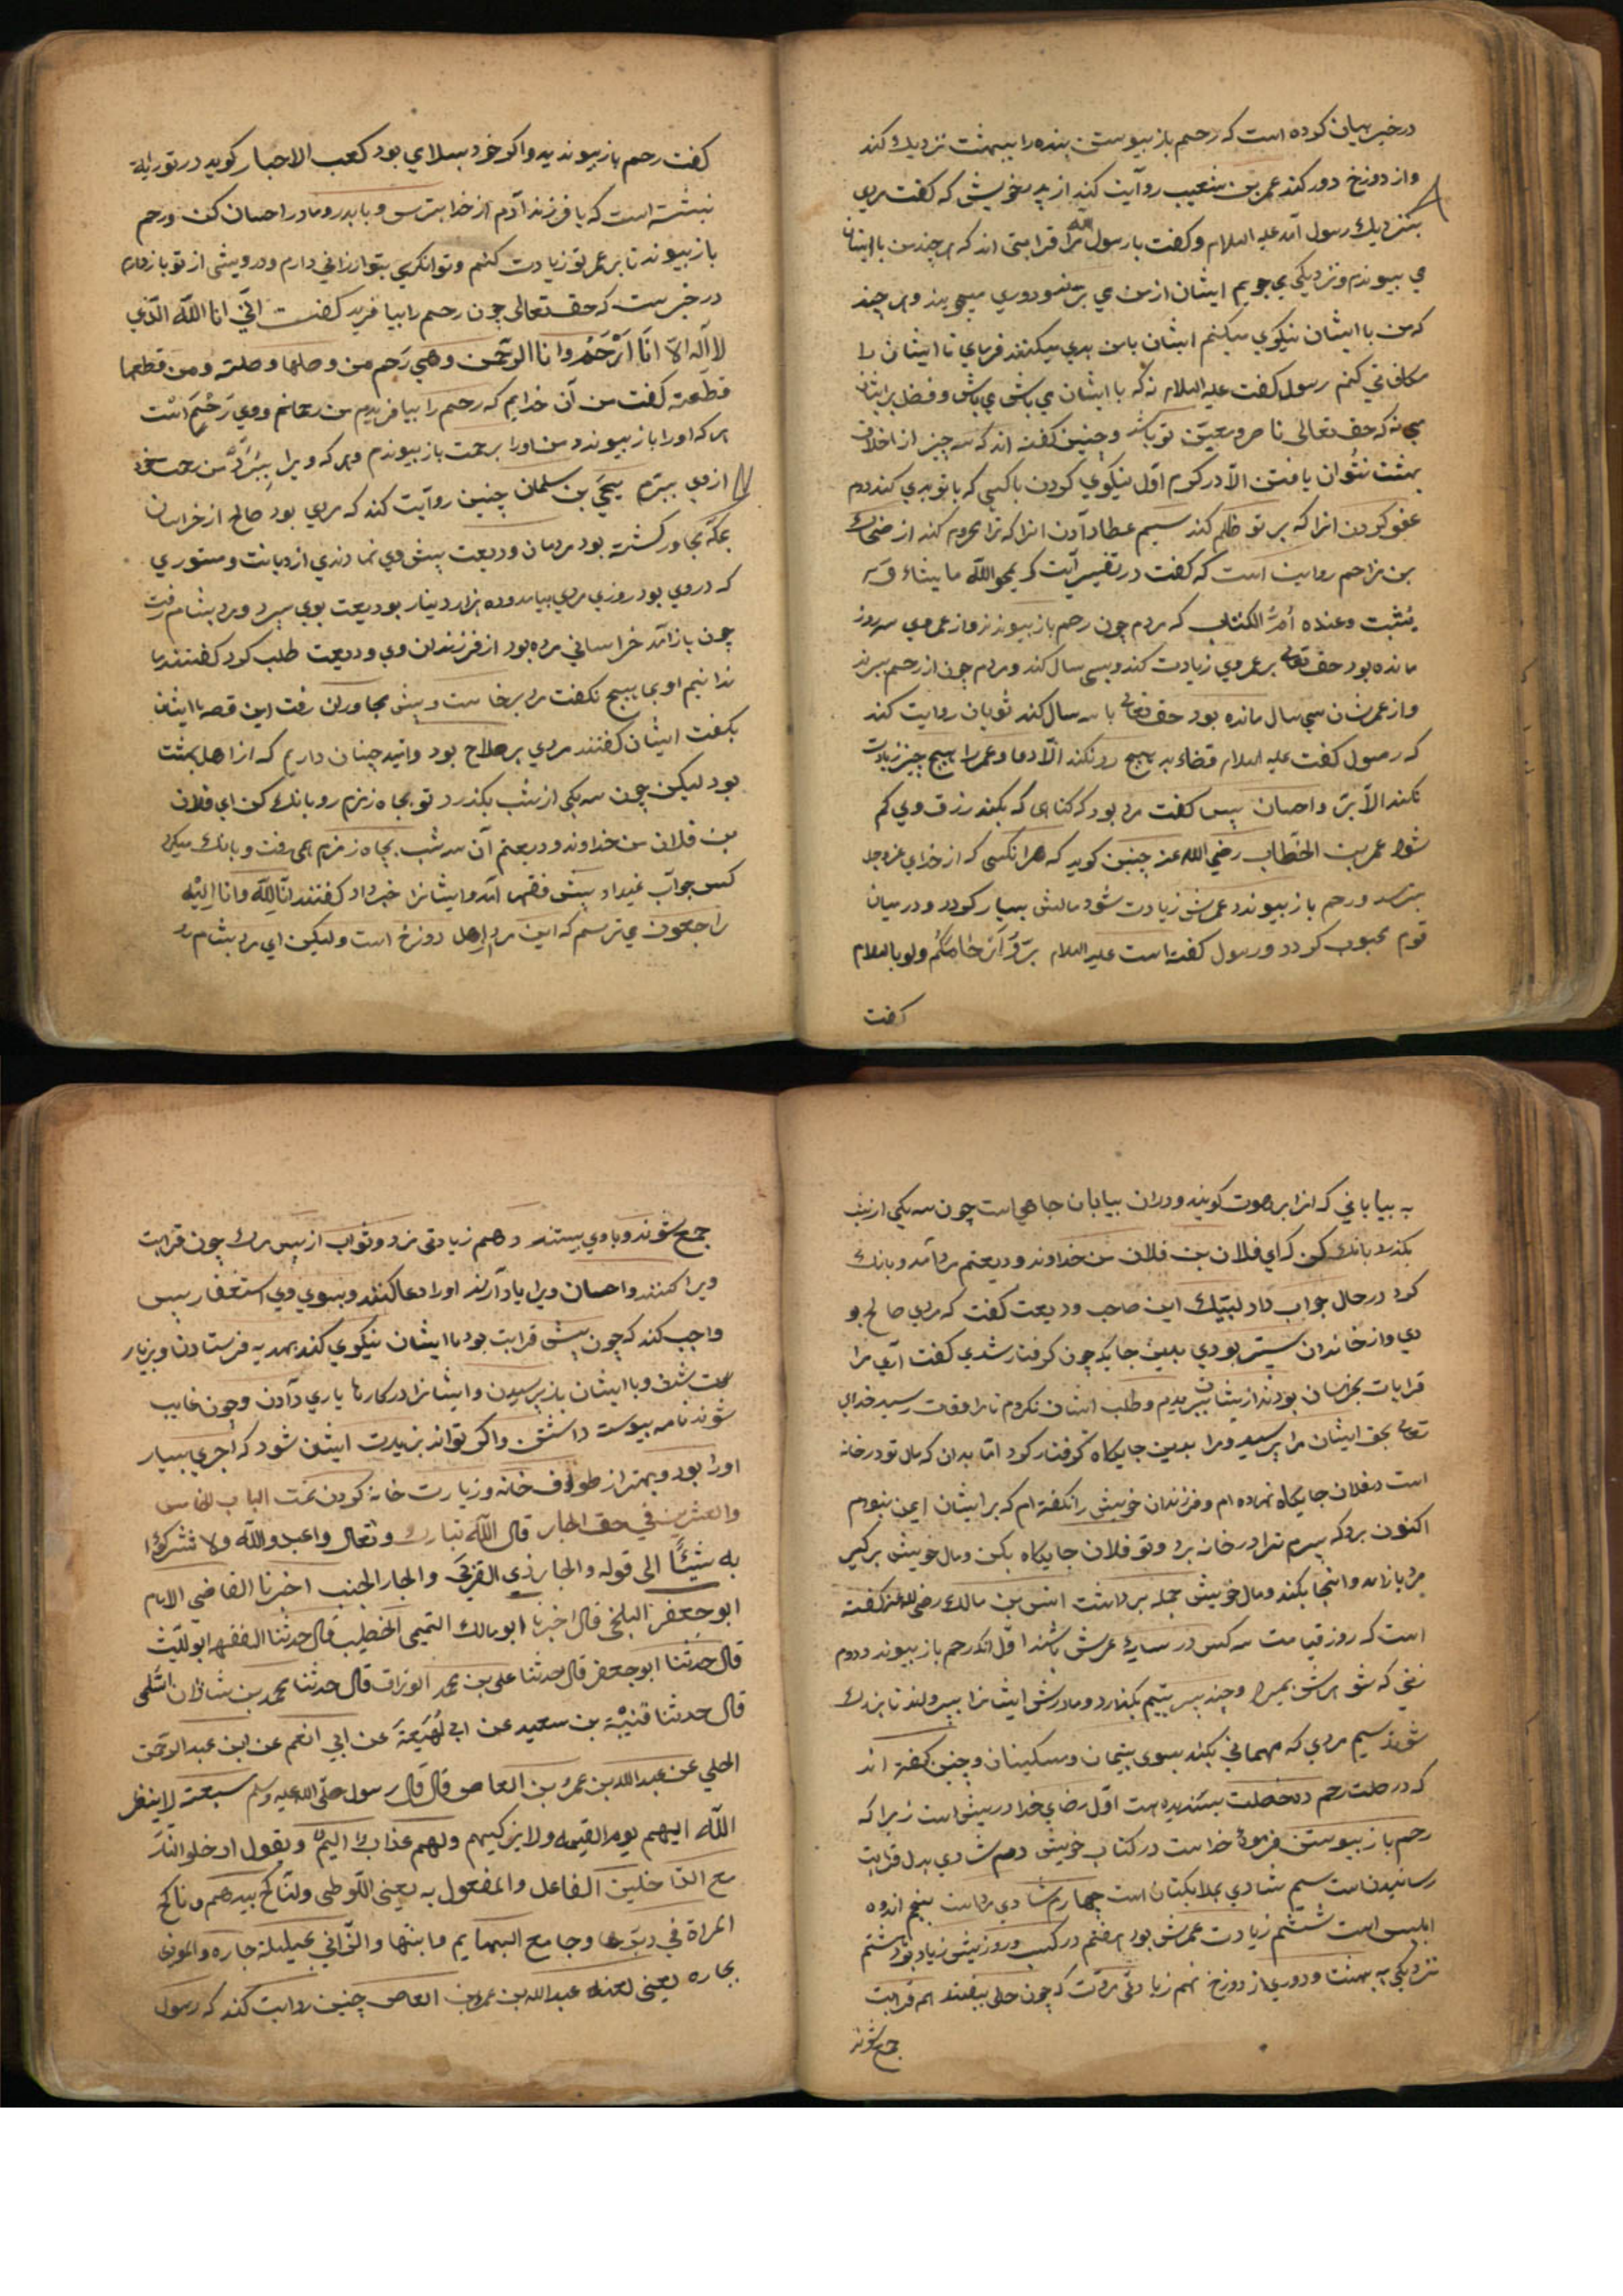 در خبر بیان کرده است که رحم باز پیوستن بنده را ببهشت نزدیک کند
و از دوزخ دور کند عمر بن شعیب روایت کند از پدر خویش که کفت مردی
بنزدیک رسول آمد علیه السلام و کفت یا رسول الله مرا قرابتی اند که هر چند من با ایشان
می پیوندم و نزدیکی می جویم ایشان از من می برند و دوری میجویند و هر چند
که من با ایشان نیکوی میکنم ایشان با من بدی میکنند فرمای تا ایشان را
مکافاتی کنم رسول کفت علیه السلام نه که با ایشان می باش و فضل بر ایشان
می نه که حق تعالی ناصر و معین تو باشد و چنین کفته اند که سه چیز از اخلاق
بهشت نتوان یافتن الا در کرم اول نیکوی کردن با کسی که با تو بدی کند دوم
عفو کردن انرا که بر تو ظلم کند سیم عطا دادن انرا که ترا محروم کند از ضحاک
بن مزاحم روایت است که کفت در تفسیر آیت که یمحو الله ما یشاء و
یثبت وعنده ام الکتاب که مردم چون رحم باز پیوندند و از عمر وی سه روز
مانده بود حق تعالی بر عمر وی زیادت کند و بسی سال کند و مردم چون از رحم ببرند
و از عمرشان سی سال مانده بود حق تعالی با سه سال کند ثوبان روایت کند
که رسول کفت علیه السلام قضاء بد هیچ رد نکند الا دعا و عمر را هیچ چیز زیادت
نکند الا بر و احسان پس کفت مرد بود که کناهی که بکند رزق وی کم
شود عمر بن الخطاب رضی الله عنه چنین کوید که هر انکسی که از خدای عزوجل
بترسد و رحم باز پیوندد عمرش زیادت شود مالش بسیار کردد و در میان
قوم محبوب کردد و رسول کفته است علیه السلام بروا ارحامکم ولو بالسلام
کفت
کفت رحم باز پیوندید و اکر خود بسلامی بود کعب الاحبار کوید در توراية
نبشته است که یا فرزند آدم از خدا بترس و با پدر و مادر احسان کن و رحم
باز پیوند تا بر عمر تو زیادت کنم و توانکری بتو ارزانی دارم و درویشی از تو باز دارم
در خبرست که حق تعالی چون رحم را بیافرید کفت انی انا الله الذی
لا اله الا انا ارحم وانا الرحمن وهی رحم من وصلها وصلته ومن قطعها
قطعته کفت من آن خدایم که رحم را بیافریدم من رحمانم و وی رحم است
هر که او را باز پیوندد من او را برحمت باز پیوندم و هر که ویرا ببرد من رحمت خود
از وی ببرم یحیی بن سلمان چنین روایت کند که مردی بود صالح از خراسان
بمکه مجاور کشته بود مردمان ودیعت پیش وی نهادندی از دیانت و مستوری
که در وی بود روزی مردی بیامد و ده هزار دینار بودیعت بوی سپرد و مرد بشام رفت
چون باز آمد خراسانی مرده بود از فرزندان وی ودیعت طلب کرد کفتند ما
ندانیم او بما هیچ نکفت مرد برخاست و پیش مجاوران رفت این قصه با ایشان
بکفت ایشان کفتند مردی پر صلاح بود و امید چنان داریم که از اهل بهشت
بود لیکن چون سه یکی از شب بکذرد تو بچاه زمزم رو و بانک کن ای فلان
بن فلان من خداوند ودیعتم آن سه شب بچاه زمزم همی رفت و بانک میکرد
کس جواب نمیداد پیش فقها آمد و ایشانرا خبر داد کفتند انا لله وانا الیه
راجعون می ترسم که این مرد اهل دوزخ است ولیکن ای مرد بشام رو
به بیابانی که انرا برهوت کویند و دران بیابان چاهی است چون سه یکی از شب
بکذرد بانک کن که ای فلان بن فلان من خداوند ودیعتم مرد آمد و بانک
کرد در حال جواب داد لبیک این صاحب ودیعت کفت که مردی صالح بو
دی و از خاندان ستر بودی بدین جایکه چون کرفتار شدی کفت آری مرا
قرابات بخراسان بودند از ایشان ببریدم و طلب ایشان نکردم تا مرا وفات رسید خدای
تعالی بحق ایشان مرا پرسید و مرا بدین جایکاه کرفتار کرد اما بدان که مال تو در خانه
است بفلان جایکاه نهاده ام و فرزندان خویش را نکفته ام که بر ایشان ایمن نبودم
اکنون برو که پسرم ترا در خانه برد و تو فلان جایکاه بکن و مال خویش برکیر
مرد باز آمد و انجا بکند و مال خویش جمله برداشت انس بن مالک رضی الله عنه کفته
است که روز قیامت سه کس در سایه عرش باشند اول انک رحم باز پیوندد دوم
زنی که شوهرش بمیرد و چند پسر یتیم بکذارد و مادرش ایشانرا بپرورلند تا بزرک
شوند سیم مردی که مهمانی بکند بسوی یتیمان و مسکینان و چنین کفته اند
که در صلت رحم ده خصلت پسندیده است اول رضای خدا درپیش است زیرا که
رحم باز پیوستن فرموده خداست در کتاب خویش دوم شادی بدل قرابت
رسانیدن است سیم شادی بملایکتان است چهارم شادی مرداست پنجم اندوه
ابلیس است ششم زیادت عمرش بود هفتم در کسب و روزیش زیاد بود هشتم
نزدیکی به بهشت و دوری از دوزخ نهم زیادتی مردت که چون حالی بیفتد همه قرابت
جمع شوند
جمع شوند و با وی بیستند دهم زیادتی مزد و ثواب از پس مرک چون قرابت
ویرا کنند و احسان ویرا یاد آرند او را دعا کنند و بسوی وی استغفار پس
واجب کند که چون پیش قرابت بود با ایشان نیکوی کند بهدیه فرستادن و بزیار
ت شدن و با ایشان باز پرسیدن و ایشانرا در کارها یاری دادن و چون غایب
شوند نامه پیوسته داشتن و اکر تواند بزیارت ایشان شود که اجری بسیار
او را بود و بهتر از طواف خانه و زیارت خانه کردن تمت الباب الخامس
والعشرین فی حق الجار قال الله تبارک وتعالی واعبدوا الله ولا تشرکوا
به شیئا الی قوله والجار ذی القربی والجار الجنب اخبرنا القاضی الامام
ابو جعفر البلخی قال اخبرنا ابو مالک التمیمی الخطیب قال حدثنا الفقیه ابو اللیث
قال حدثنا ابو جعفر قال حدثنا علی بن محمد الوراق قال حدثنا محمد بن شاذان السلمی
قال حدثنا قتیبة بن سعید عن ابی لهیعة عن ابی انعم عن ابن عبد الرحمن
الحلبی عن عبد الله بن عمرو بن العاص قال قال رسول صلی الله علیه وسلم سبعة لا ینظر
الله الیهم یوم القیمة ولا یزکیهم ولهم عذاب الیم ویقول ادخلوا النار
مع الداخلین الفاعل والمفعول به یعنی اللوطی والناکح بیدهم وناکح
المراة فی دبرها وجامع البهایم وابنتها والزانی بحلیلة جاره والموذی
بجاره یعنی لعنة عبد الله بن عمرو بن العاص چنین روایت کند که رسول